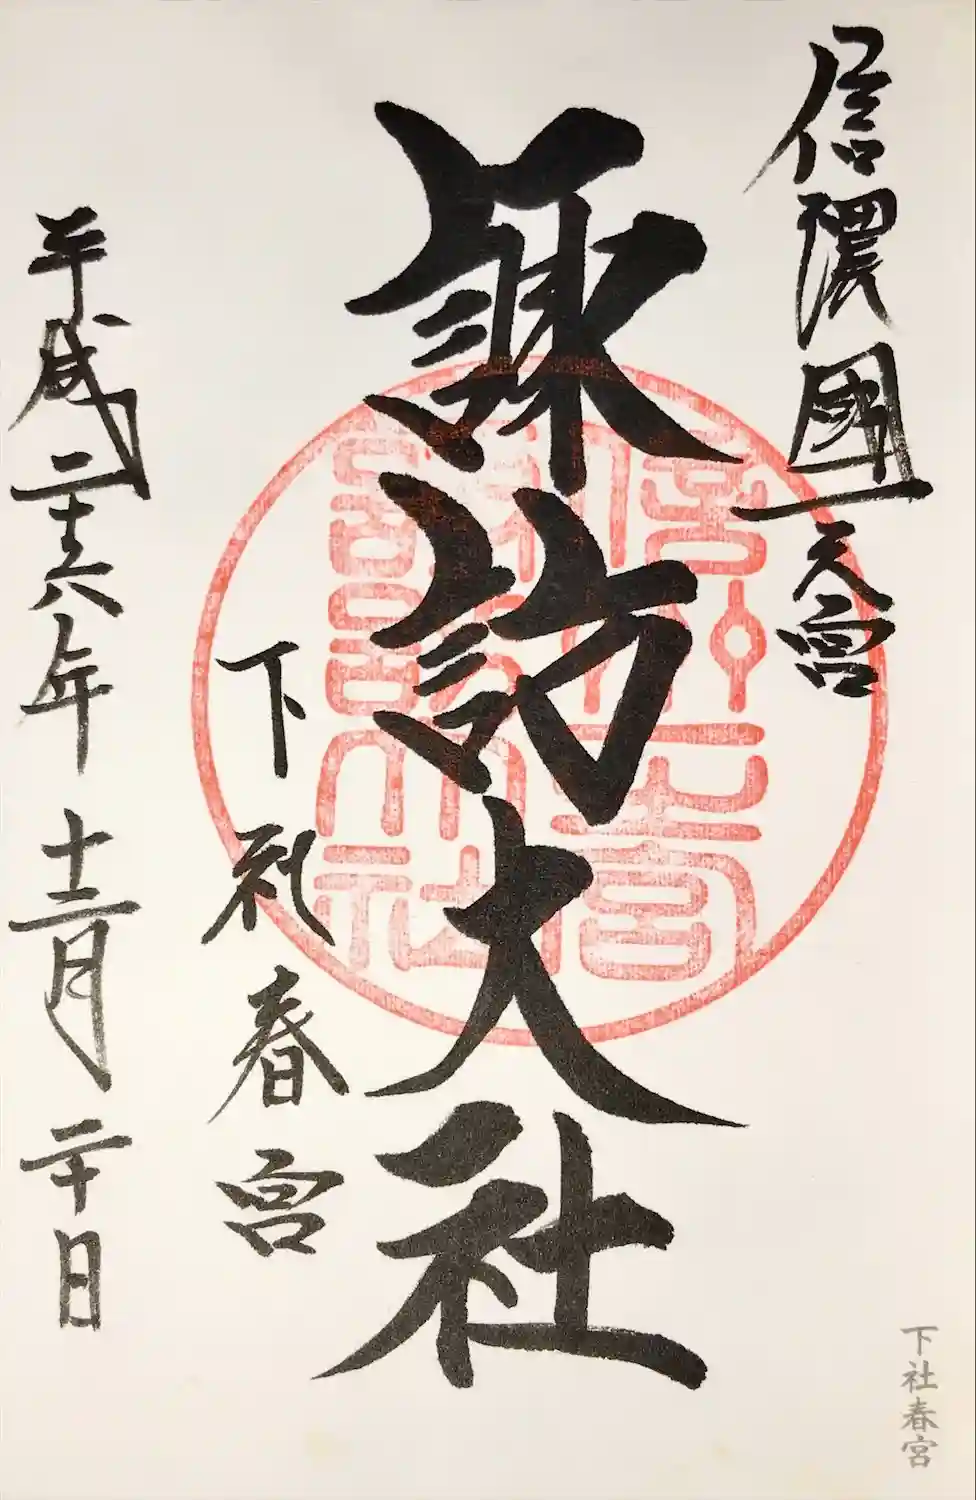 信濃國一之宮
諏訪大社
下社春宮
平成二十六年十二月二十日
下社春宮
信濃國一之宮
諏訪大社